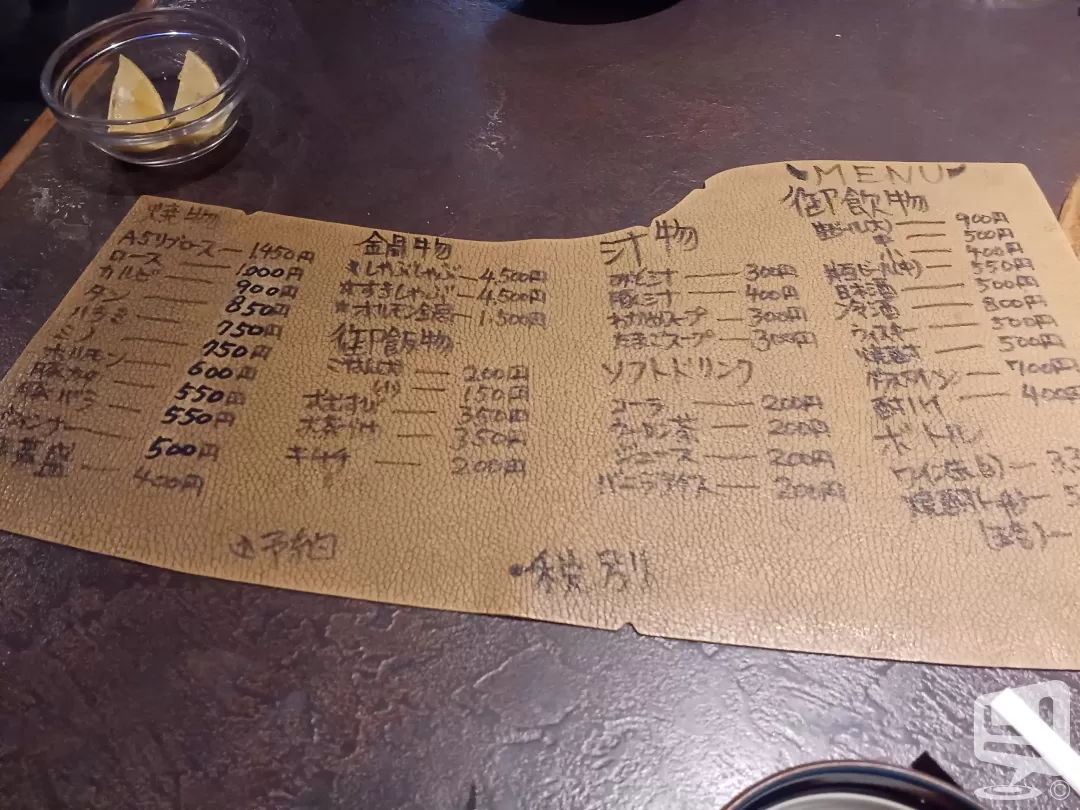 MENU
焼物
A5リブロース — 1,450円
ロース — 1,000円
カルビ — 900円
タン — 850円
ハラミ 750円
ミノ — 750円
ホルモン — 600円
550円
豚バラ — 550円
ウィンナー — 500円
400円
鍋物
*しゃぶしゃぶ — 4,500円
*すきしゃぶ — 4,500円
*ホルモン鍋 — 1,500円
御飯物
ごはん(大) — 200円
(小) — 150円
おむすび — 350円
お茶づけ — 350円
キムチ — 200円
汁物
みそ汁 — 300円
豚汁 — 400円
わかめスープ — 300円
たまごスープ — 300円
ソフトドリンク
コーラ — 200円
ウーロン茶 — 200円
ジュース — 200円
バニラアイス — 200円
御飲物
生ビール(大) — 900円
中 — 500円
小 — 400円
瓶ビール(中) — 550円
日本酒 — 500円
冷酒 — 800円
ウィスキー — 500円
焼酎 — 500円
グラスワイン — 700円
酎ハイ — 400円
ボトル
ワイン(赤・白) —
*予約
•税別